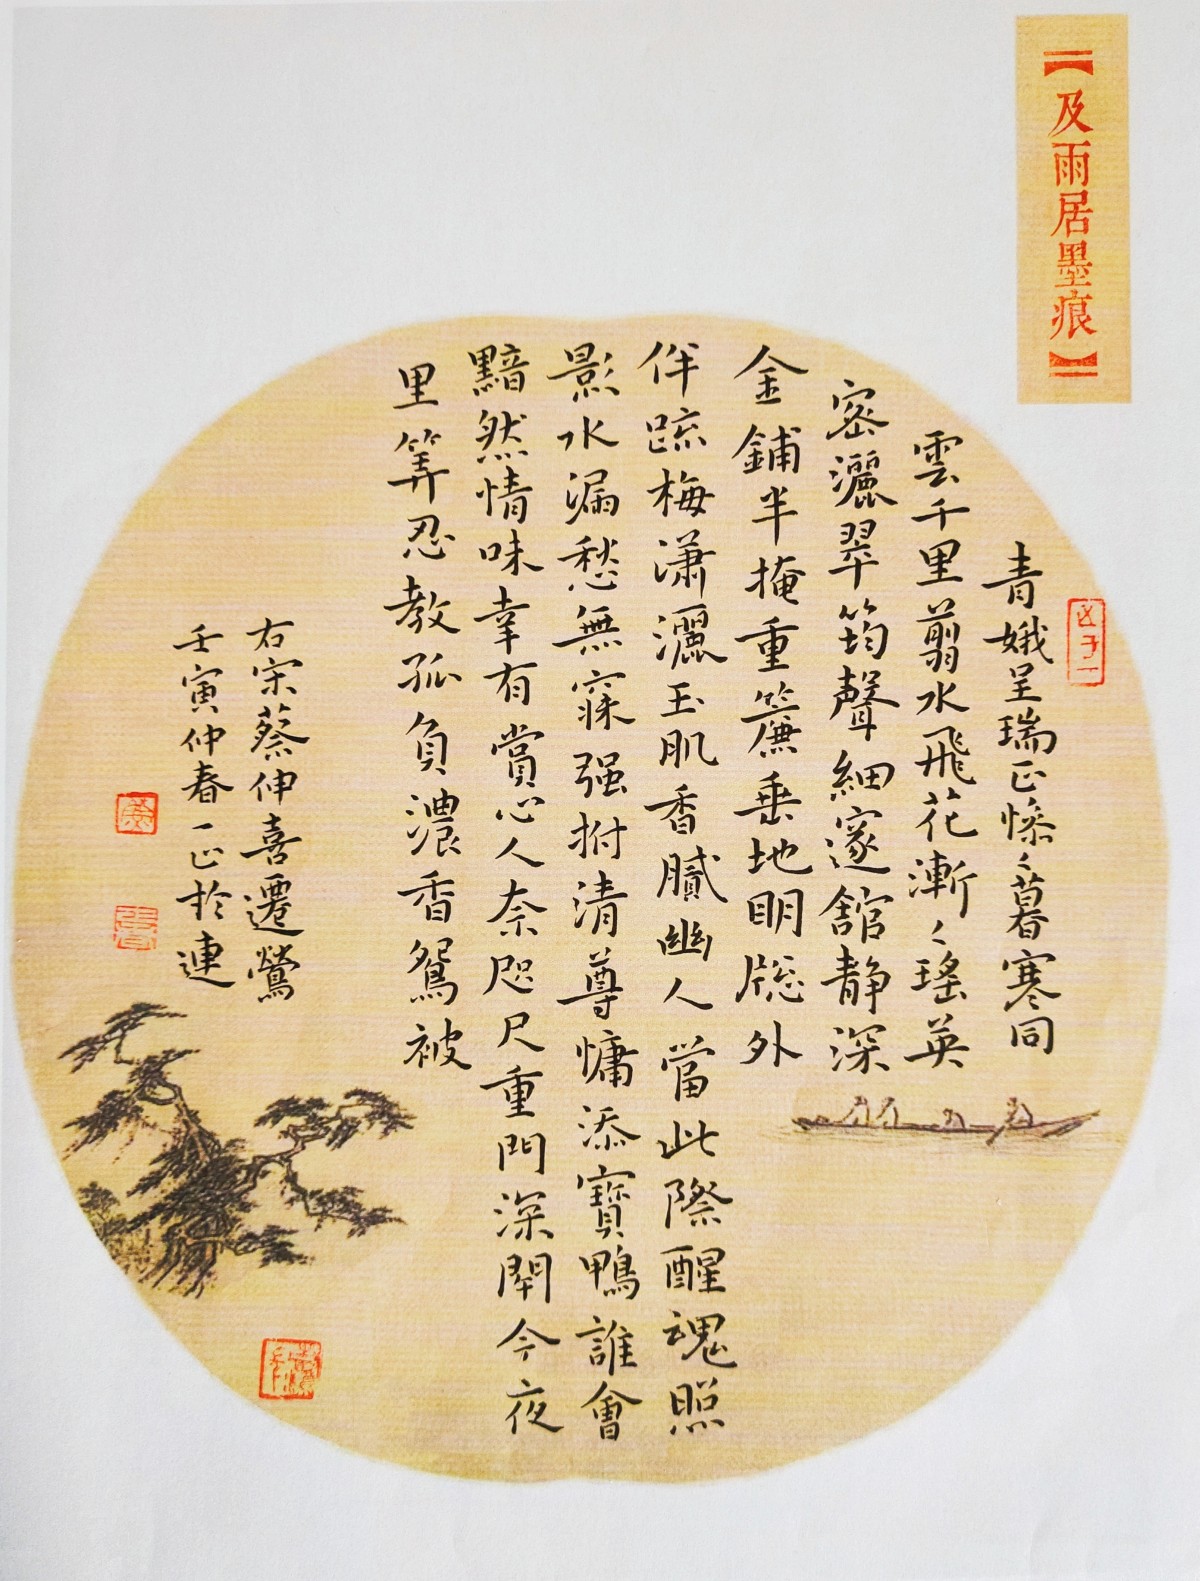 【及雨居墨痕】
青娥呈瑞正慘〻暮寒同
雲千里翦水飛花漸〻瑤英
密灑翠筠聲細邃館静深
金鋪半掩重簾垂地明牕外
伴疏梅瀟灑玉肌香膩幽人當此際醒魂照
影水漏愁無寐强拊清尊慵添寶鴨誰會
黯然情味幸有賞心人奈咫尺重門深閉今夜
里筭忍教孤負濃香鴛被
右宋蔡伸喜遷鶯
壬寅仲春一正於連